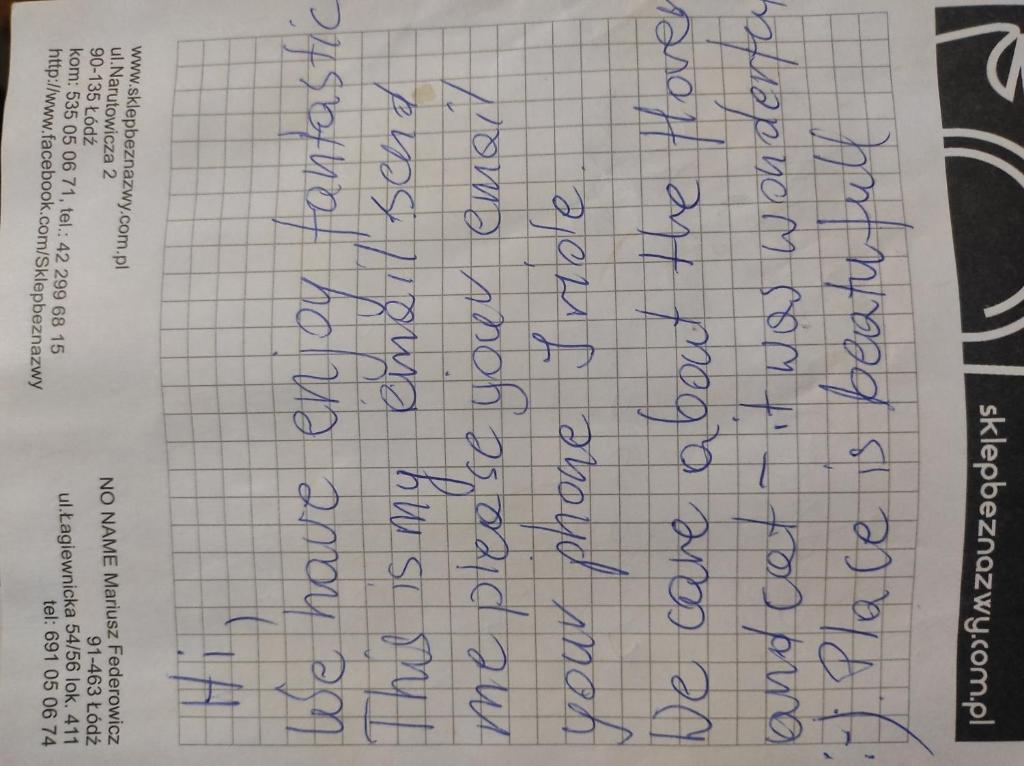 Hi,
We have enjoy fantastic
This is my email / send
me please youer email
your phone I ride.
We care about the
and cat – it was wonderful
:-). Place is beatufull
sklepbeznazwy.com.pl
www.sklepbeznazwy.com.pl
ul.Narutowicza 2
90-135 Łódź
kom: 535 05 06 71, tel.: 42 299 68 15
http://www.facebook.com/Sklepbeznazwy
NO NAME Mariusz Federowicz
91-463 Łódź
ul.Łagiewnicka 54/56 lok. 411
tel: 691 05 06 74